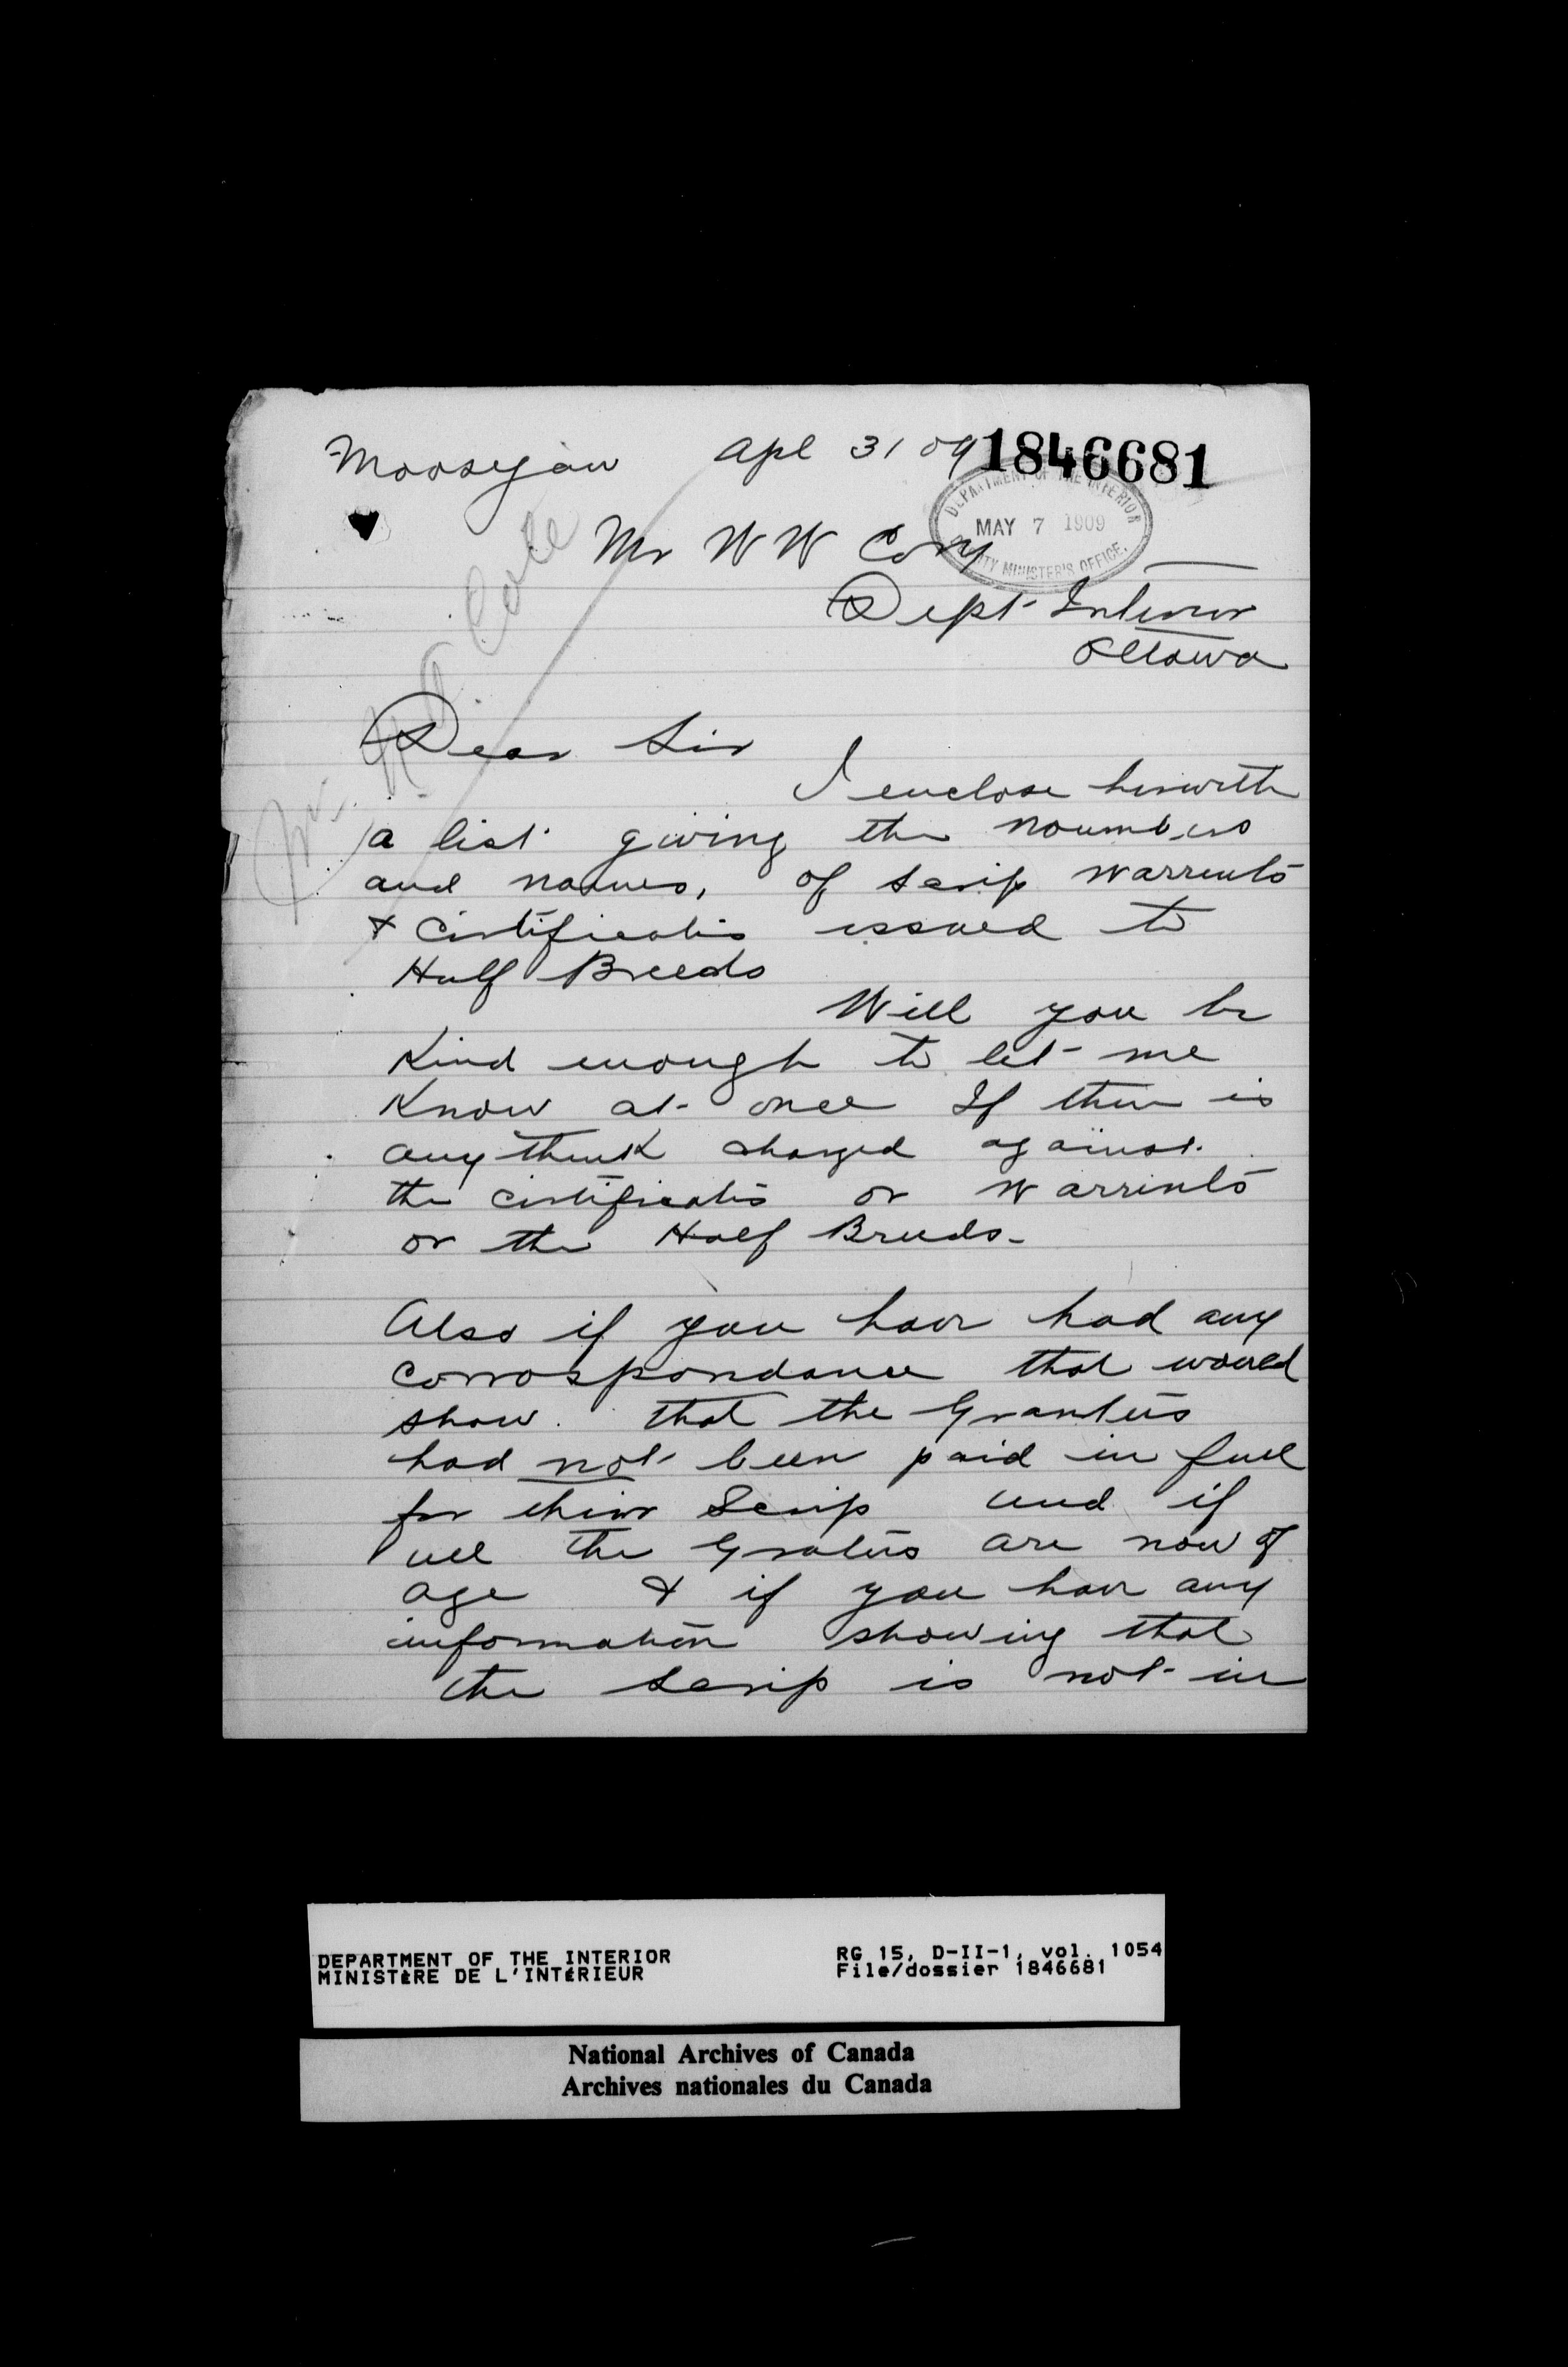 Moosejaw Apl 31 09 1846681
DEPARTMENT OF THE INTERIOR
MAY 7 1909
DEPUTY MINISTER'S OFFICE.
Mr W W Cory
Dept Interior
Ottawa
Mr. N.O. Cote
Dear Sir
I enclose herwith
a list giving the noumbers
and names, of scrip warrents
& certificates issued to
Half Breeds
Will you be
Kind enough to let me
Know at once If there is
any think charged against
the certificates or warrents
or the Half Breeds-
Also if you have had any
corrospondance that would
show. that the Grantees
had not been paid in full
for thier Scrip and if
all the Gratees are now of
age & if you have any
information showing that
the scrip is not in
DEPARTMENT OF THE INTERIOR
MINISTÈRE DE L'INTÉRIEUR
RG 15, D-II-1, vol. 1054
File/dossier 1846681
National Archives of Canada
Archives nationales du Canada